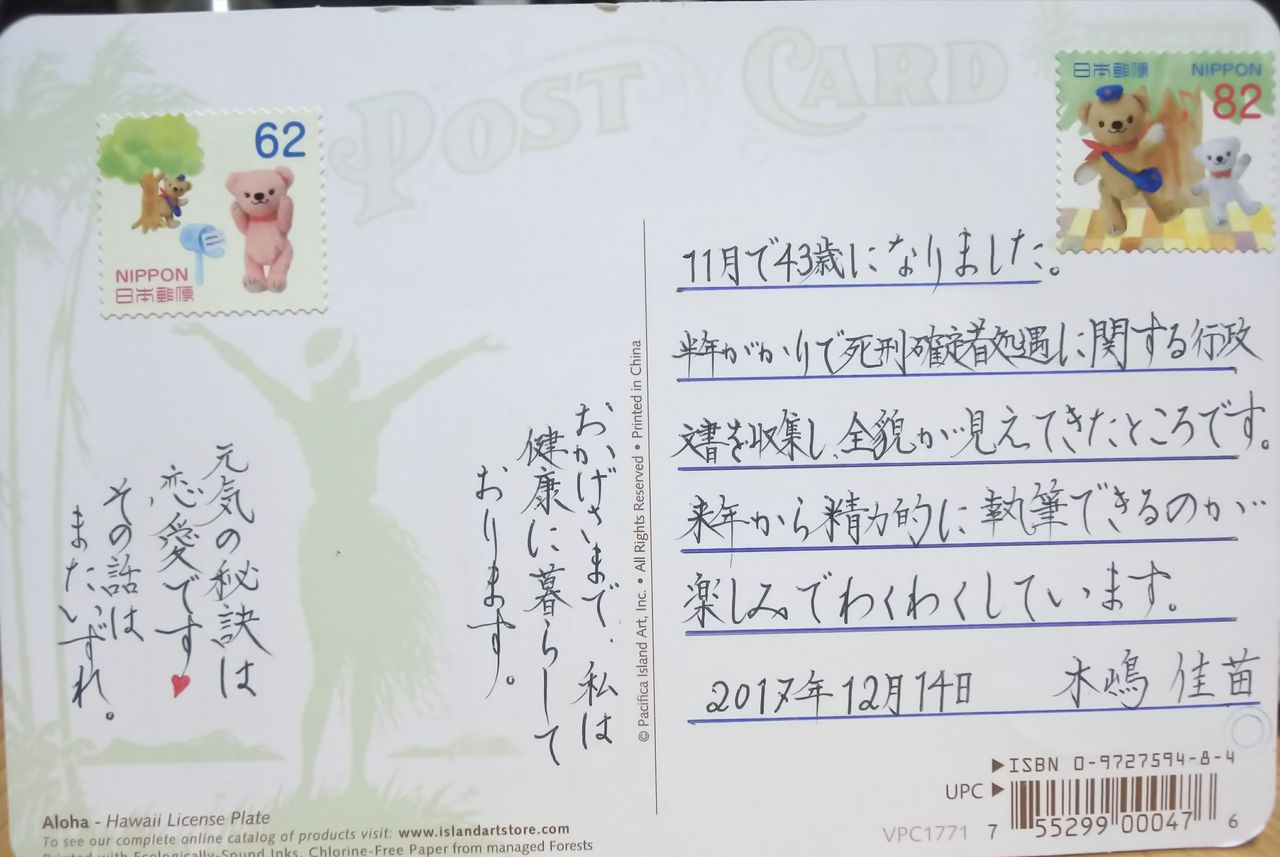 POST CARD
62
NIPPON
日本郵便
日本郵便 NIPPON
82
おかげさまで、私は
健康に暮らして
おります。
元気の秘訣は
恋愛です♥
その話は
またいずれ。
© Pacifica Island Art, Inc. • All Rights Reserved • Printed in China
11月で43歳になりました。
半年がかりで死刑確定者処遇に関する行政
文書を収集し、全貌が見えてきたところです。
来年から精力的に執筆できるのが…
楽しみでわくわくしています。
2017年12月14日 木嶋 佳苗
▶ISBN 0-9727594-8-4
UPC ▶
VPC1771 7 55299 00047 6
Aloha - Hawaii License Plate
To see our complete online catalog of products visit: www.islandartstore.com
Printed with Ecologically-Sound Inks, Chlorine-Free Paper from managed Forests